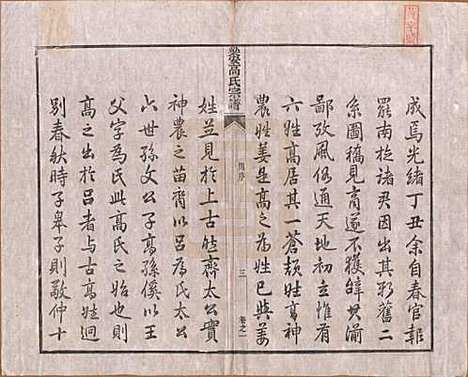 成焉光緒丁丑余自春官報
罷南旋諸君因出其新舊二
系圖稿見商遂不獲辭其渝
鄙攷風俗通天地初立惟有
六姓高居其一蒼頡姓高神
農姓姜是高之為姓已與姜
高氏宗譜
周序
三
卷之一
姓並見於上古時齊太公實
神農之苗裔以呂為氏太公
六世孫文公子高孫傒以王
父字為氏此高氏之始也則
高之出於呂者与古高姓迥
別春秋時子皋子則敬仲十